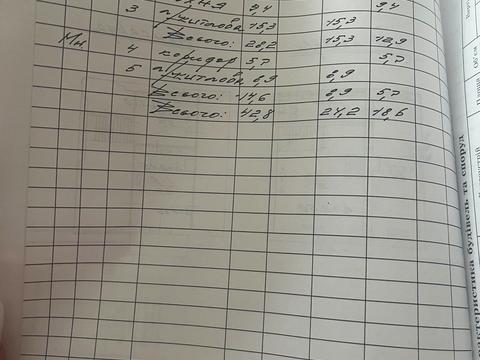 9,4 9,4
3 житлова 15,3 15,3
Всього: 28,2 15,3 12,9
Мн 4 коридор 5,7 5,7
5 житлова 8,9 8,9
Всього: 14,6 8,9 5,7
Всього: 42,8 24,2 18,6
будівель та споруд